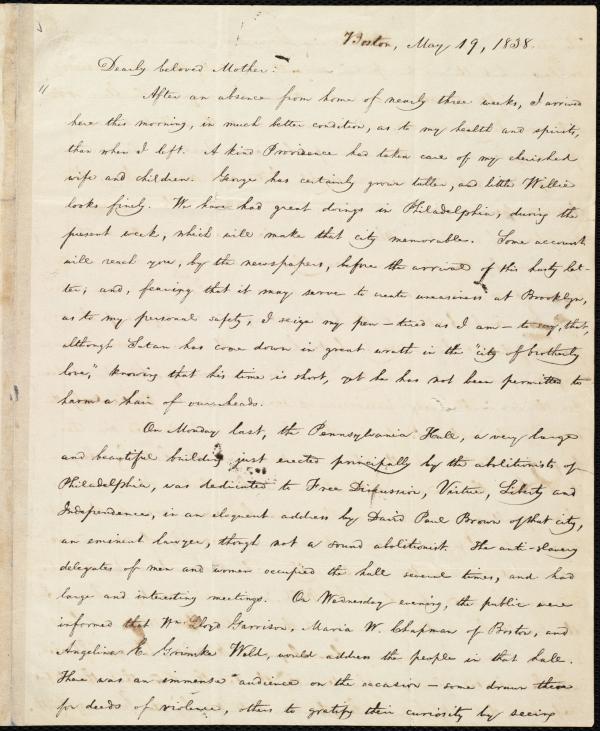 Boston, May 19, 1838.
Dearly beloved Mother:
After an absence from home of nearly three weeks, I arrived
here this morning, in much better condition, as to my health and spirits,
than when I left. A kind Providence had taken care of my cherished
wife and children. George has certainly grown taller, and little Willie
looks finely. We have had great doings in Philadelphia, during the
present week, which will make that city memorable. Some account
will reach you, by the newspapers, before the arrival of this hasty let-
ter; and, fearing that it may serve to create uneasiness at Brooklyn,
as to my personal safety, I seize my pen – tired as I am – to say, that,
although Satan has come down in great wrath in the "city of brotherly
love," knowing that his time is short, yet he has not been permitted to
harm a hair of our heads.
On Monday last, the Pennsylvania Hall, a very large
and beautiful building just erected principally by the abolitionists of
Philadelphia, was dedicated to Free Discussion, Virtue, Liberty and
Independence, in an eloquent address by David Paul Brown of that city,
an eminent lawyer, though not a sound abolitionist. The anti-slavery
delegates of men and women occupied the hall several times, and had
large and interesting meetings. On Wednesday evening, the public were
informed that Wm. Lloyd Garrison, Maria W. Chapman of Boston, and
Angelina E. Grimke Weld, would address the people in that hall.
There was an immense audience on the occasion – some drawn there
for deeds of violence, others to gratify their curiosity by seeing